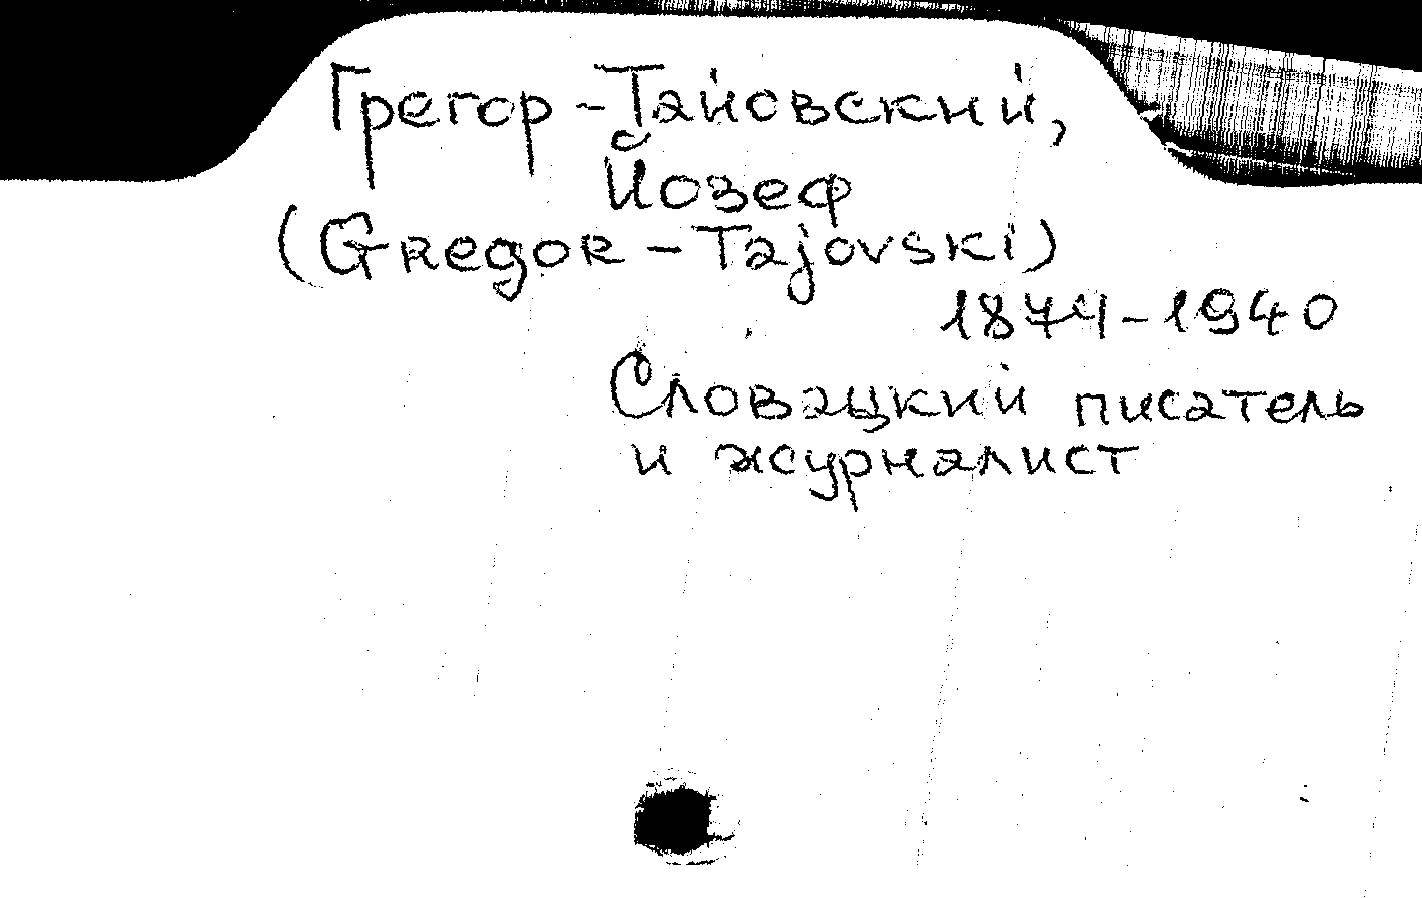 Грегор-Тайовский,
Йозеф
(Gregor-Tajovski)
1874-1940
Словацкий писатель
и журналист